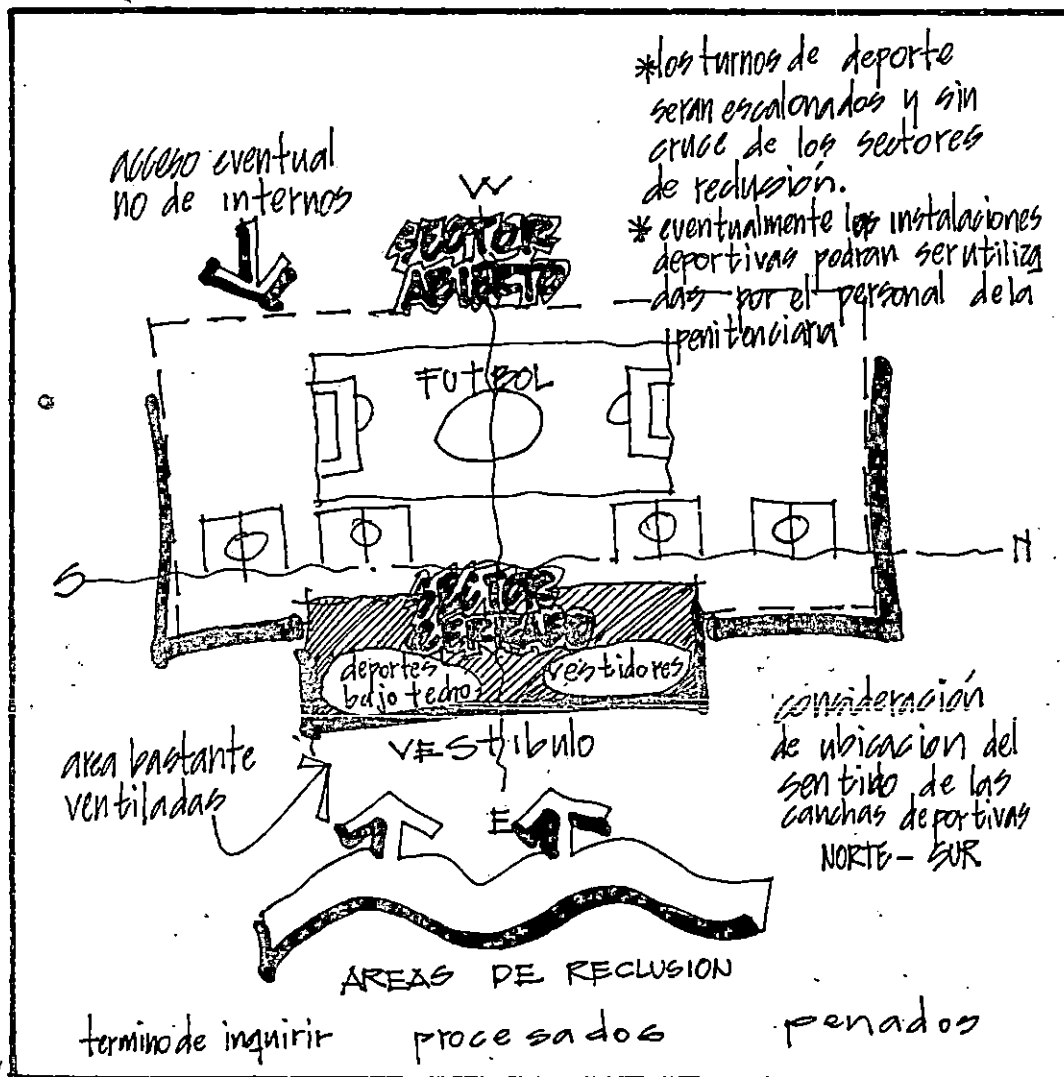 *los turnos de deporte
seran escalonados y sin
cruce de los sectores
de reclusión.
* eventualmente las instalaciones
deportivas podran ser utiliza
das por el personal de la
penitenciaria
acceso eventual
no de internos
W
SECTOR
ABIERTO
FUTBOL
S
N
SECTOR
CERRADO
deportes
bajo techo
vestidores
VESTIBULO
area bastante
ventiladas
E
consideración
de ubicacion del
sentido de las
canchas deportivas
NORTE - SUR
AREAS DE RECLUSION
termino de inquirir
procesados
penados